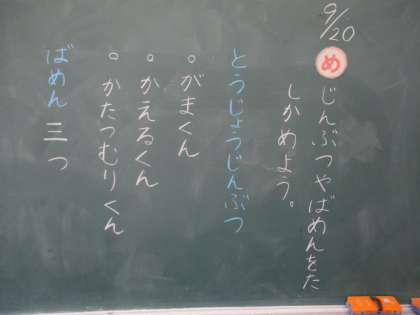 9/20
め
じんぶつやばめんをた
しかめよう。
とうじょうじんぶつ
。がまくん
。かえるくん
。かたつむりくん
ばめん 三つ